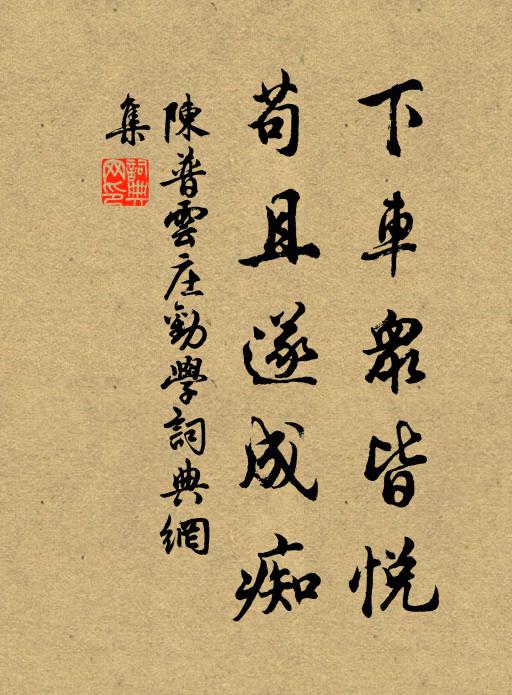 下車衆皆悅
苟且遂成痴
陳普雲庄勸學詞典網
集
詞典
网印